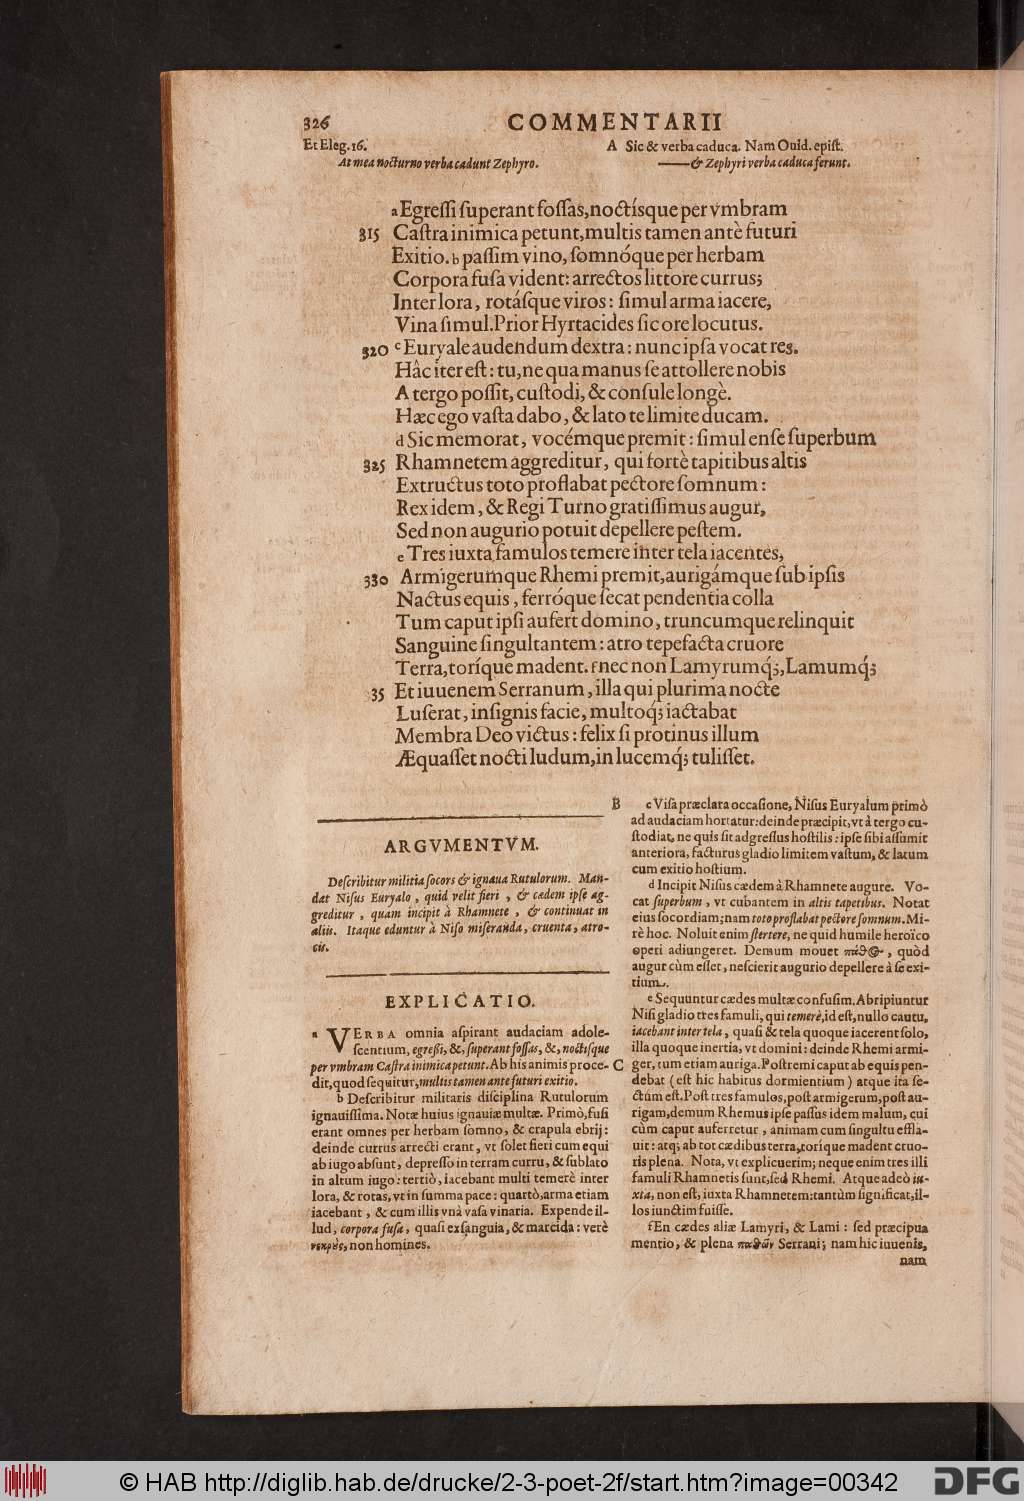 326
COMMENTARII
Et Eleg. 16.
At mea nocturno verba cadunt Zephyro.
A Sic & verba caduca. Nam Ouid. epist.
—— & Zephyri verba caduca ferunt.
a Egreſſi ſuperant foſſas, noctíſque per vmbram
315 Caſtra inimica petunt, multis tamen antè futuri
Exitio. b paſſim vino, ſomnóque per herbam
Corpora fuſa vident: arrectos littore currus;
Inter lora, rotáſque viros: ſimul arma iacere,
Vina ſimul. Prior Hyrtacides ſic ore locutus.
320 c Euryale audendum dextra: nunc ipſa vocat res.
Hâc iter eſt: tu, ne qua manus ſe attollere nobis
A tergo poſſit, cuſtodi, & conſule longè.
Hæc ego vaſta dabo, & lato te limite ducam.
d Sic memorat, vocémque premit: ſimul enſe ſuperbum
325 Rhamnetem aggreditur, qui fortè tapitibus altis
Extructus toto proflabat pectore ſomnum:
Rex idem, & Regi Turno gratiſſimus augur,
Sed non augurio potuit depellere peſtem.
e Tres iuxta famulos temere inter tela iacentes,
330 Armigerumque Rhemi premit, aurigámque ſub ipſis
Nactus equis, ferróque ſecat pendentia colla
Tum caput ipſi aufert domino, truncumque relinquit
Sanguine ſingultantem: atro tepefacta cruore
Terra, toríque madent. f nec non Lamyrumq́;, Lamumq́;
35 Et iuuenem Serranum, illa qui plurima nocte
Luſerat, inſignis facie, multoq́; iactabat
Membra Deo victus: felix ſi protinus illum
Æquaſſet nocti ludum, in lucemq́; tuliſſet.
ARGVMENTVM.
Deſcribitur militia ſocors & ignaua Rutulorum. Man-
dat Niſus Euryalo, quid velit fieri, & cædem ipſe ag-
greditur, quam incipit à Rhamnete, & continuat in
aliis. Itaque eduntur à Niſo miſeranda, cruenta, atro-
cia.
EXPLICATIO.
a VERBA omnia aſpirant audaciam adole-
ſcentium, egreſſi, &, ſuperant foſſas, &, noctiſque
per vmbram Caſtra inimica petunt. Ab his animis proce-
dit, quod ſequitur, multis tamen ante futuri exitio.
b Deſcribitur militaris diſciplina Rutulorum
ignauiſſima. Notæ huius ignauiæ multæ. Primò, fuſi
erant omnes per herbam ſomno, & crapula ebrij:
deinde currus arrecti erant, vt ſolet fieri cum equi
ab iugo abſunt, depreſſo in terram curru, & ſublato
in altum iugo: tertiò, iacebant multi temerè inter
lora, & rotas, vt in ſumma pace: quartò, arma etiam
iacebant, & cum illis vnà vaſa vinaria. Expende il-
lud, corpora fuſa, quaſi exſanguia, & marcida: verè
νεκροὺς, non homines.
B c Viſa præclara occaſione, Niſus Euryalum primò
ad audaciam hortatur: deinde præcipit, vt à tergo cu-
ſtodiat, ne quis ſit adgreſſus hoſtilis: ipſe ſibi aſſumit
anteriora, facturus gladio limitem vaſtum, & latum
cum exitio hoſtium.
d Incipit Niſus cædem à Rhamnete augure. Vo-
cat ſuperbum, vt cubantem in altis tapetibus. Notat
eius ſocordiam; nam toto proflabat pectore ſomnum. Mi-
rè hoc. Noluit enim ſtertere, ne quid humile heroïco
operi adiungeret. Demum mouet πάθος, quòd
augur cùm eſſet, neſcierit augurio depellere à ſe exi-
tium.
e Sequuntur cædes multæ confuſim. Abripiuntur
Niſi gladio tres famuli, qui temerè, id eſt, nullo cautu,
iacebant inter tela, quaſi & tela quoque iacerent ſolo,
illa quoque inertia, vt domini: deinde Rhemi armi-
C ger, tum etiam auriga. Poſtremi caput ab equis pen-
debat (eſt hic habitus dormientium) atque ita ſe-
ctũm eſt. Poſt tres famulos, poſt armigerum, poſt au-
rigam, demum Rhemus ipſe paſſus idem malum, cui
cùm caput auferretur, animam cum ſingultu effla-
uit: atq; ab tot cædibus terra, torique madent cruo-
ris plena. Nota, vt explicuerim; neque enim tres illi
famuli Rhamnetis ſunt, ſed Rhemi. Atque adeò iu-
xta, non eſt, iuxta Rhamnetem: tantùm ſignificat, il-
los iunctim fuiſſe.
f En cædes aliæ Lamyri, & Lami: ſed præcipua
mentio, & plena παθῶν Serrani; nam hic iuuenis,
nam
© HAB http://diglib.hab.de/drucke/2-3-poet-2f/start.htm?image=00342
DFG